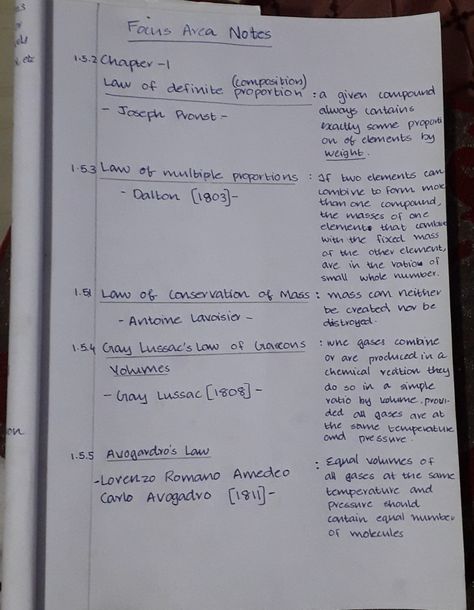 Focus Area Notes
1.5.2 Chapter -1
Law of definite (composition) proportion : a given compound
- Joseph Proust - always contains
exactly same proporti
on of elements by
weight.
1.5.3 Law of multiple proportions : If two elements can
- Dalton [1803]- combine to form more
than one compound,
the masses of one
elements that combine
with the fixed mass
of the other element,
are in the ratio of
small whole number.
1.51 Law of Conservation of Mass : mass can neither
- Antoine Lavoisier - be created nor be
distroyed.
1.5.4 Gay Lussac's Law of Gaseous : gases combine
Volumes or are produced in a
- Gay Lussac [1808] - chemical they
do so in a simple
ratio by volume, provi
ded all gases are at
the same temperature
and pressure.
1.5.5 Avogardro's Law : Equal volumes of
-Lorenzo Romano Amedeo all gases at the same
Carlo Avogadro [1811]- temperature and
pressure should
contain equal number
of molecules